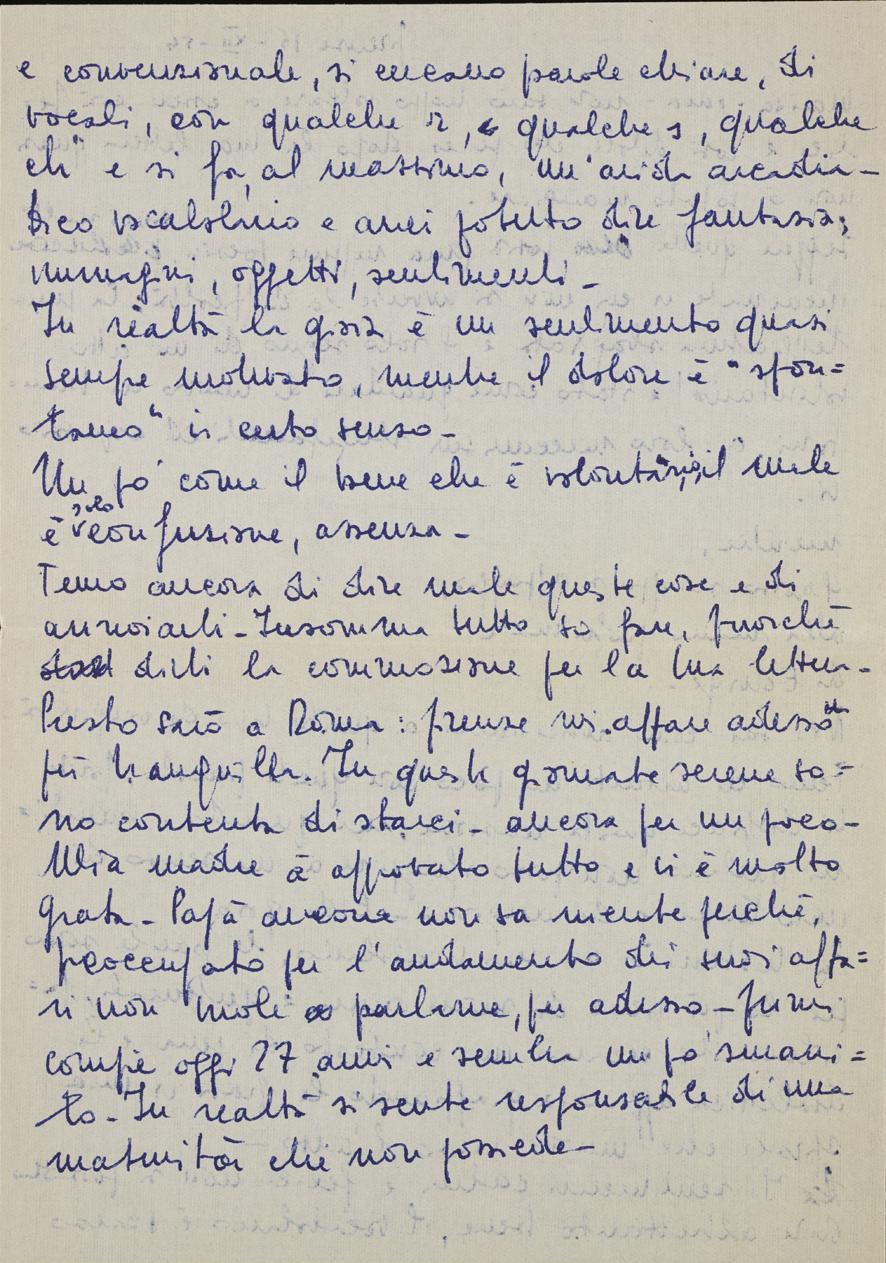 e convenzionale, si cercano parole chiare, di
vocali, con qualche r, e qualche s, qualche
ch" e si fa, al massimo, un'arida arcadia-
Dico vocabolario e avrei potuto dire fantasia;
immagini, oggetti, sentimenti-
In realtà la gioia è un sentimento quasi
sempre motivato, mentre il dolore è "spon=
taneo" in certo senso-
Un po' come il bene che è volontario, il male
è solo confusione, assenza-
Temo ancora di dire male queste cose e di
annoiarti-Insomma tutto so fare, fuorché
dirti la commozione per la tua lettera-
Presto sarò a Roma: Firenze mi appare adesso
più tranquilla. In queste giornate serene so=
no contenta di starci- ancora per un poco-
Mia madre à approvato tutto e ti è molto
grata- Papà ancora non sa niente perché,
preoccupato per l'andamento dei suoi affa=
ri non vuole parlarne, per adesso-
compie oggi 27 anni e sembra un po' smarri=
to- In realtà si sente responsabile di una
maturità che non possiede-